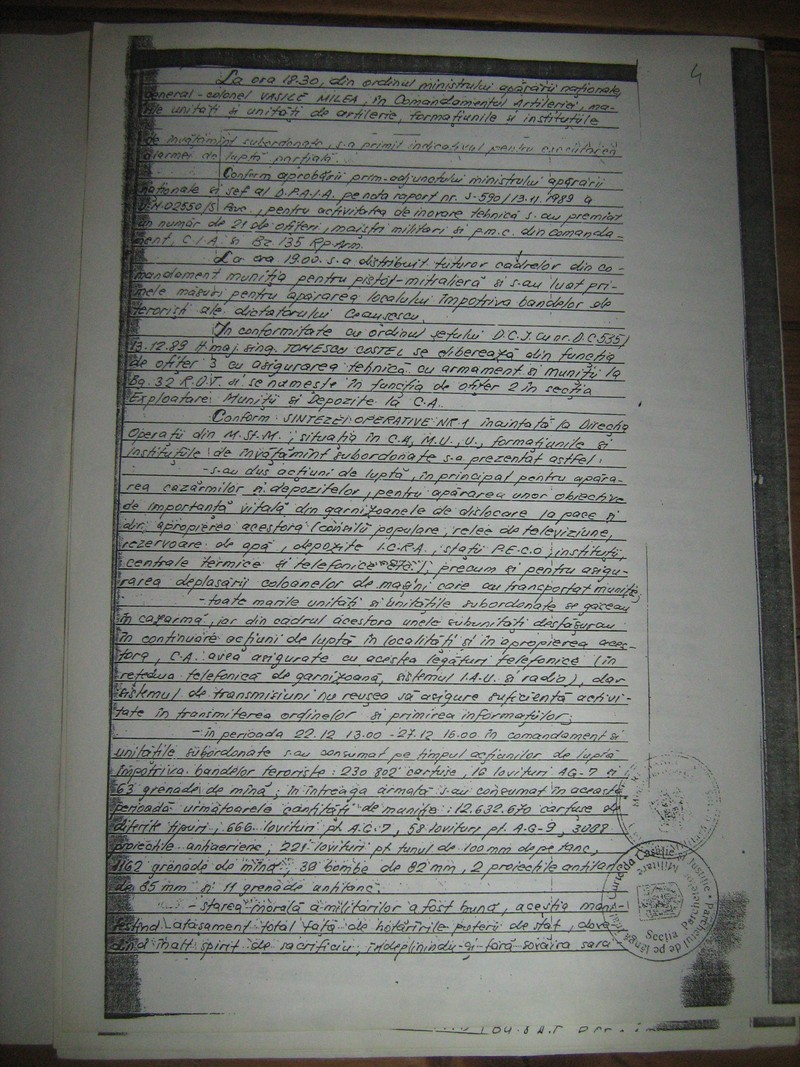 4
La ora 18.30, din ordinul ministrului apărării naționale,
general-colonel VASILE MILEA, în Comandamentul Artileriei, ma-
rile unități și unități de artilerie, formațiunile și instituțiile
de învățămînt subordonate, s-a primit indicativul pentru executarea
alarmei de luptă parțială.
Conform aprobării prim-adjunctului ministrului apărării
naționale și șef al D.P.A.I.A. pe nota raport nr. S-590/13.11.1989 a
U.M.02550/S Buc., pentru activitatea de inovare tehnică s-au premiat
un număr de 21 de ofițeri, maiștri militari și p.m.c. din comanda-
ment, C.I.A. și Bz. 135 Rp.Arm.
La ora 19.00. s-a distribuit tuturor cadrelor din co-
mandament muniția pentru pistol-mitralieră și s-au luat pri-
mele măsuri pentru apărarea localului împotriva bandelor de
teroriști ale dictatorului Ceaușescu.
În conformitate cu ordinul șefului D.C.Î. cu nr. D.C.535/
13.12.89 lt.maj.ing. TOMESCU COSTEL se eliberează din funcția
de ofițer 3 cu asigurarea tehnică cu armament și muniții la
Bg. 32 R.O.T. și se numește în funcția de ofițer 2 în secția
Exploatare Muniții și Depozite la C.A.
Conform SINTEZEI OPERATIVE NR.1 înaintată la Direcția
Operații din M.St.M., situația în C.A., M.U., U., formațiunile și
instituțiile de învățămînt subordonate s-a prezentat astfel:
-s-au dus acțiuni de luptă, în principal pentru apăra-
rea cazărmilor și depozitelor, pentru apărarea unor obiective
de importanță vitală din garnizoanele de dislocare la pace și
din apropierea acestora (consilii populare, relee de televiziune,
rezervoare de apă, depozite I.C.R.A., stații P.E.C.O, instituții,
centrale termice și telefonice etc.), precum și pentru asigu-
rarea deplasării coloanelor de mașini care au transportat muniție;
-toate marile unități și unitățile subordonate se găseau
în cazarmă, iar din cadrul acestora unele subunități desfășurau
în continuare acțiuni de luptă în localități și în apropierea aces-
tora, C.A. avea asigurate cu acestea legături telefonice (în
rețeaua telefonică de garnizoană, sistemul I.A.U. și radio), dar
sistemul de transmisiuni nu reușea să asigure suficientă activi-
tate în transmiterea ordinelor și primirea informațiilor;
-în perioada 22.12 13.00 -27.12 16.00 în comandament și
unitățile subordonate s-au consumat pe timpul acțiunilor de luptă
împotriva bandelor teroriste: 230 802 cartușe, 16 lovituri AG-7 și
63 grenade de mînă; în întreaga armată s-au consumat în această
perioadă următoarele cantități de muniție: 12.632.670 cartușe de
diferite tipuri, 666 lovituri pt. A.G.7, 58 lovituri pt. A.G-9, 3088
proiectile antiaeriene, 221 lovituri pt. tunul de 100 mm de pe tanc,
1162 grenade de mînă, 38 bombe de 82 mm, 2 proiectile antitanc
de 85 mm și 11 grenade antitanc;
-starea morală a militarilor a fost bună, aceștia mani-
festînd atașament total față de hotărîrile puterii de stat, dove-
dind înalt spirit de sacrificiu, îndeplinindu-și fără șovăire sarci-
Parchetul de pe lângă Înalta Curte de Casație și Justiție
Secția Parchetelor Militare